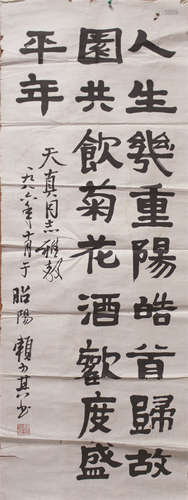 人生幾重陽皓首歸故
園共飲菊花酒歡度盛
平年
天真同志雅教
一九八六年十月于昭陽
賴少其书